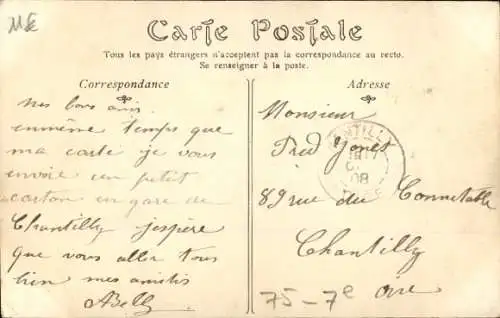 Carte Postale
Tous les pays étrangers n'acceptent pas la correspondance au recto.
Se renseigner à la poste.
Correspondance
Adresse
Mes bons amis
en même temps que
ma carte je vous
envoie un petit
carton en gare de
Chantilly j'espère
que vous aller tous
bien mes amitiés
Monsieur
Fred Jones
89 rue du Connetable
Chantilly
Oise
75-7e